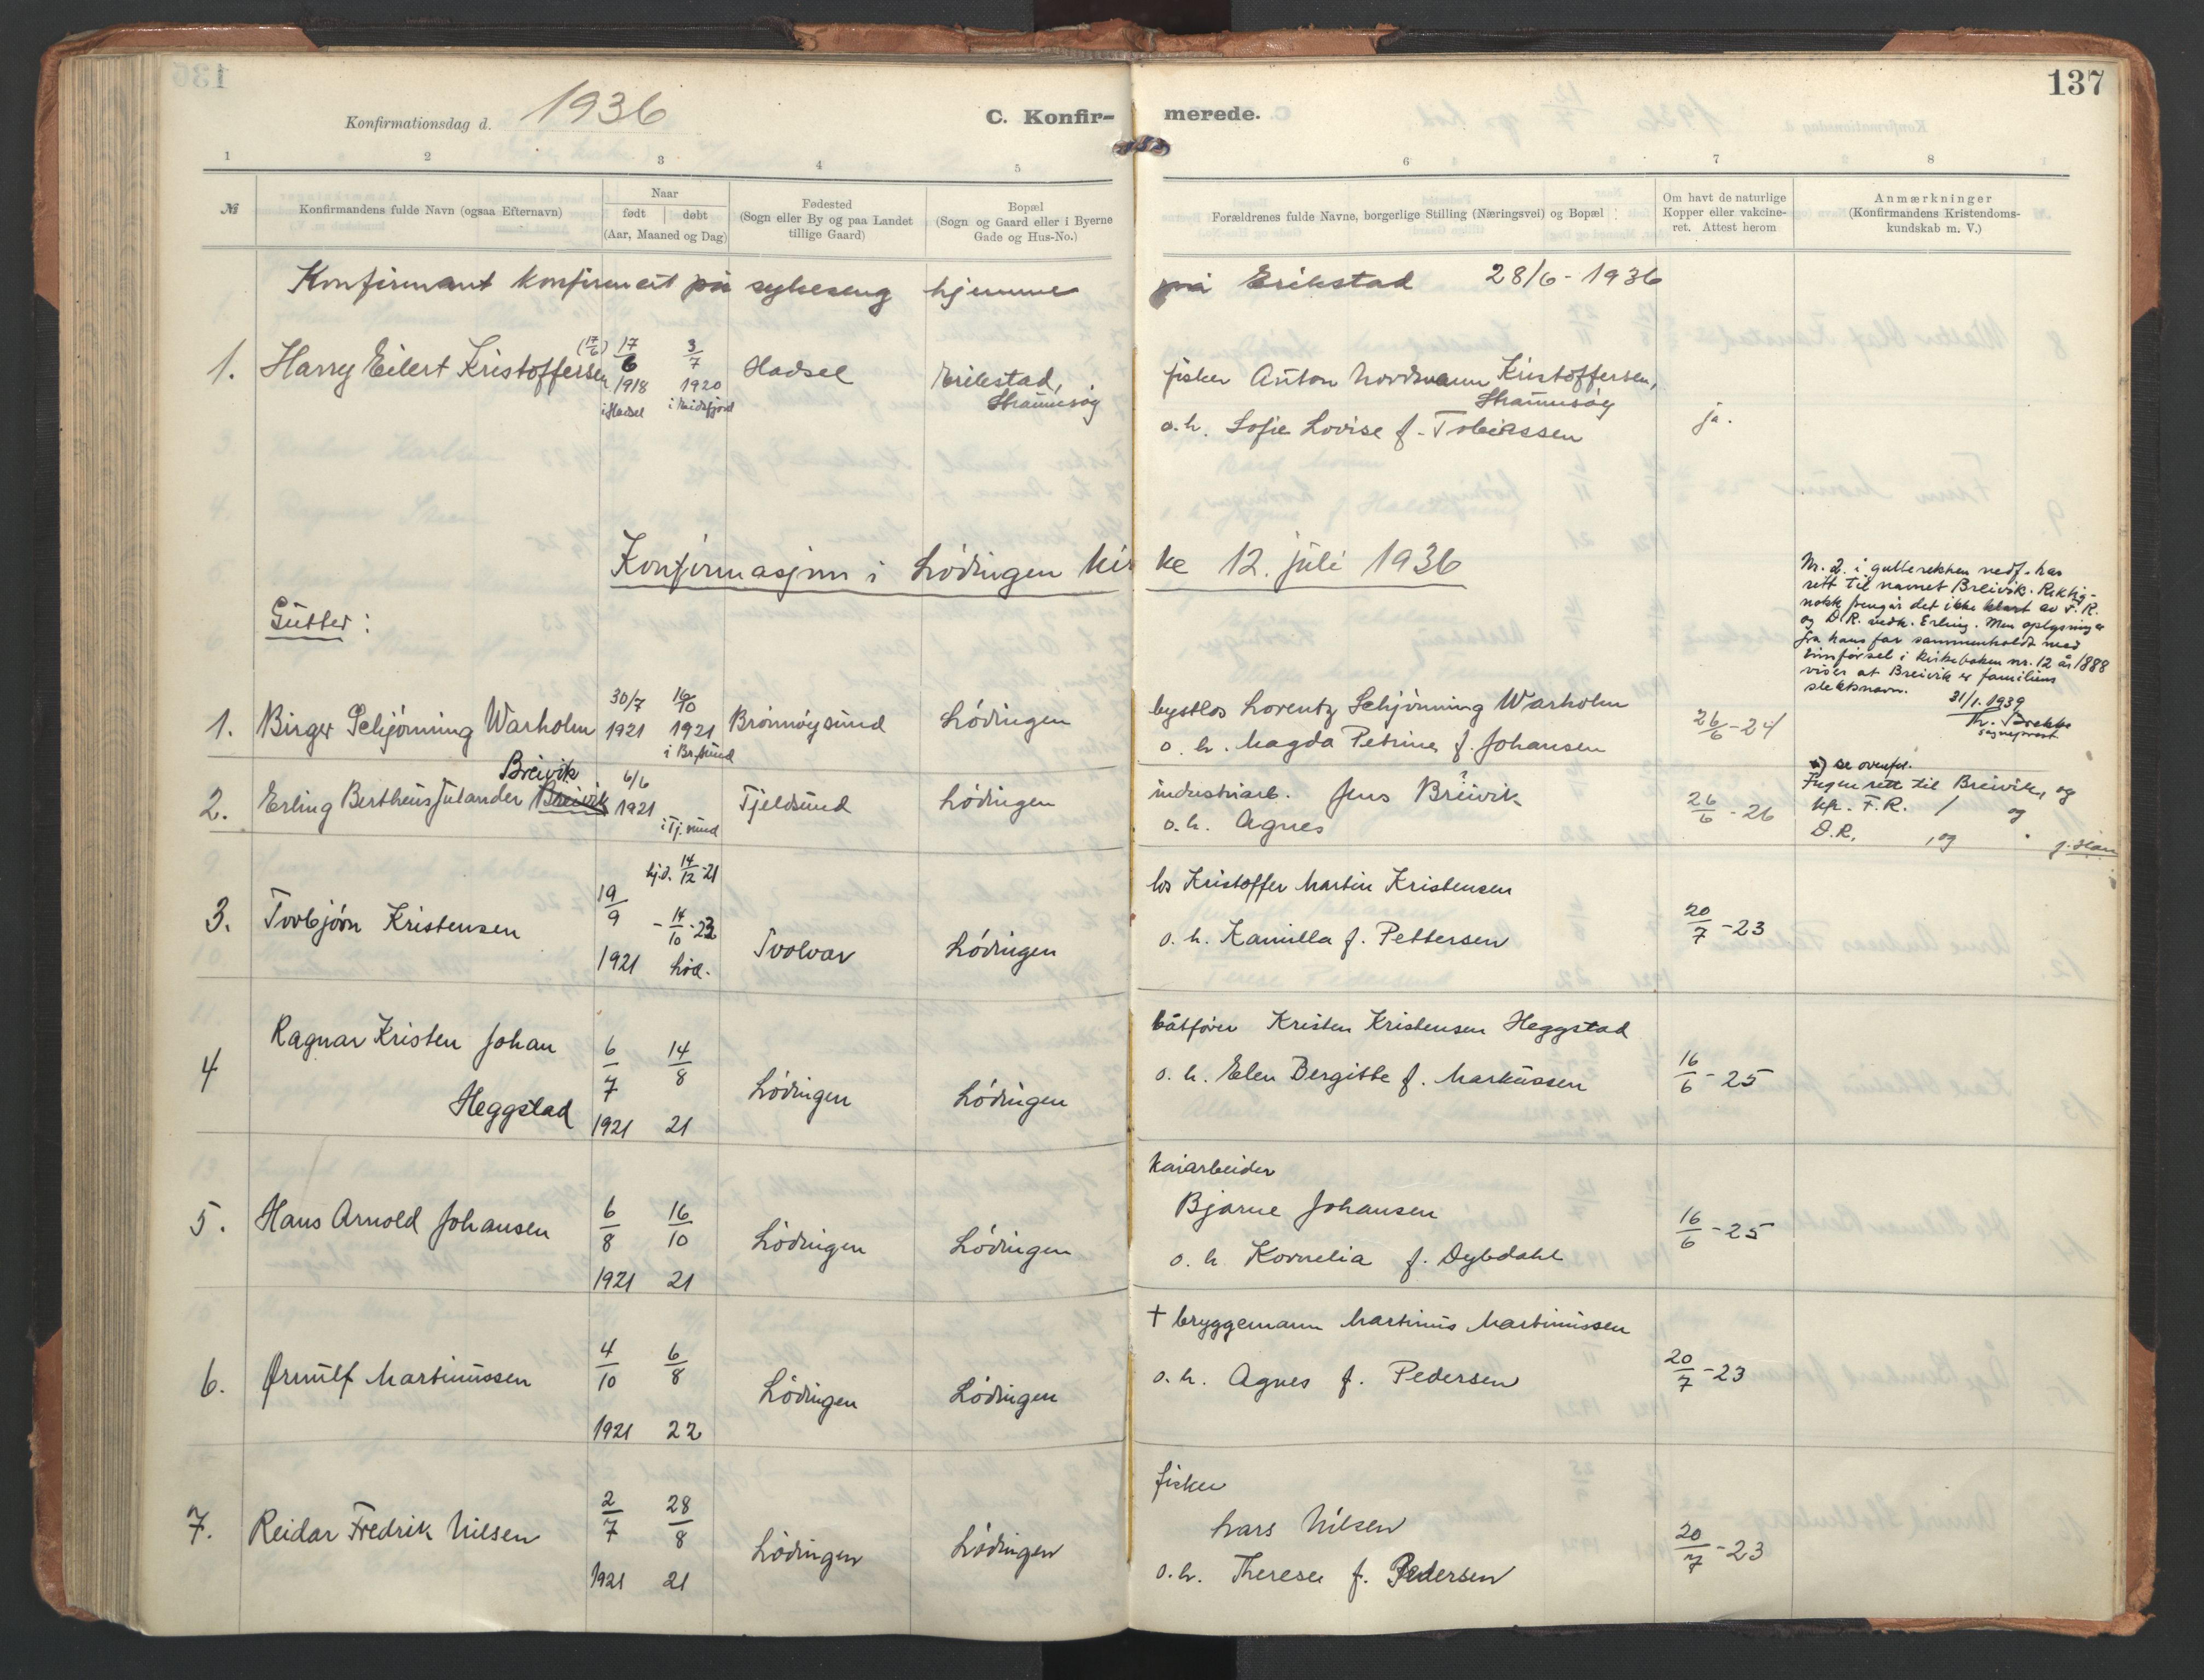 137
Konfirmationsdag d. 1936
C. Konfir-
merede.
1 2 3 4 5 6 7 8
№
Konfirmandens fulde Navn (ogsaa Efternavn)
Naar
født | døbt
(Aar, Maaned og Dag)
Fødested
(Sogn eller By og paa Landet
tillige Gaard)
Bopæl
(Sogn og Gaard eller i Byerne
Gade og Hus-No.)
Forældrenes fulde Navne, borgerlige Stilling (Næringsvei) og Bopæl
Om havt de naturlige
Kopper eller vakcine-
ret. Attest herom
Anmærkninger
(Konfirmandens Kristendoms-
kundskab m. V.)
Konfirmant konfirmert på sykeseng hjemme på Erikstad 28/6-1936
1. Harry Eilert Kristoffersen (17/6) 17/6 1918 i Hadsel 3/7 1920 i Eidsfjord Hadsel Erikstad, Straumsøy
fisker Anton Nordmann Kristoffersen, Straumsøy
o.h. Sofie Lovise f. Tobiassen
ja.
Konfirmasjon i Lödingen kirke 12. juli 1936
Gutter:
Nr. 2. i gutterekken nedf. har
rett til navnet Breivik. Riktig-
nokk fremgår det ikke klart av F.R.
og D.R. vedk. Erling. Men oplysninger
fra hans far sammenholdt med
innførsel i kirkeboken nr. 12 år 1888
viser at Breivik er familiens
slektsnavn.
31/1.1939
sogneprest
1. Birger Schjönning Warholm 30/7 1921 16/10 1921 i Br.sund Brönnöysund Lödingen
bystlos Lorentz Schjönning Warholm
o. h. Magda Petrine f. Johansen
26/6-24
2. Erling Bertheus Julander Breivik Breivik 6/6 1921 i Tj.sund Tjeldsund Lödingen
industriarb. Jens Breivik ?
o.h. Agnes
26/6-26
se ovenfor.
Ingen rett til Breivik, og
kfr. F.R. / og
D.R. , og
3. Torbjörn Kristensen 19/9 1921 hj.d. 14/12-21 - 14/10-23 Löd. Tvolvar Lödingen
los Kristoffer Martin Kristensen
o.h. Kamilla f. Pettersen
20/7-23
4 Ragnar Kristen Johan
Heggstad 6/7 1921 14/8 21 Lödingen Lödingen
båtförer Kristen Kristensen Heggstad
o.h. Elen Bergitte f. Markussen
16/6-25
5. Hans Arnold Johansen 6/8 1921 16/10 21 Lödingen Lödingen
kaiarbeider
Bjarne Johansen
o. h. Kornelia f. Dybdahl
16/6-25
6. Ørnulf Martinussen 4/10 1921 6/8 22 Lödingen Lödingen
† bryggemann Martinus Martinussen
o.h. Agnes f. Pedersen
20/7-23
7. Reidar Fredrik Nilsen 2/7 1921 28/8 21 Lödingen Lödingen
fisker
Lars Nilsen
o.h. Therese f. Pedersen
20/7-23